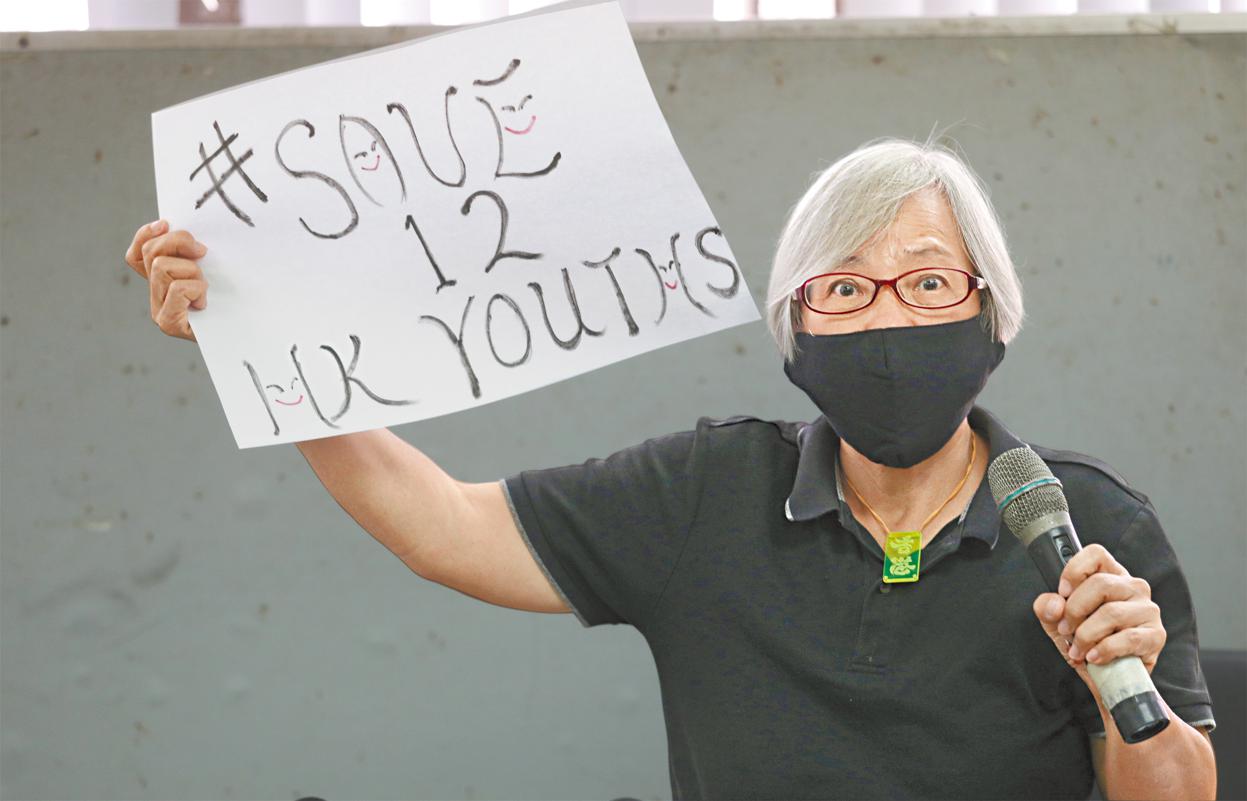 #SAVE
12
HK YOUTHS